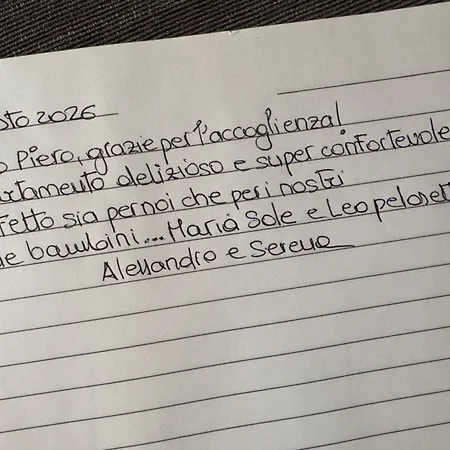 sto 2026
o Piero, grazie per l'accoglienza!
artamento delizioso e super confortevole
fetto sia per noi che per i nostri
e bambini... Maria Sole e Leo pelosett
Alessandro e Serena